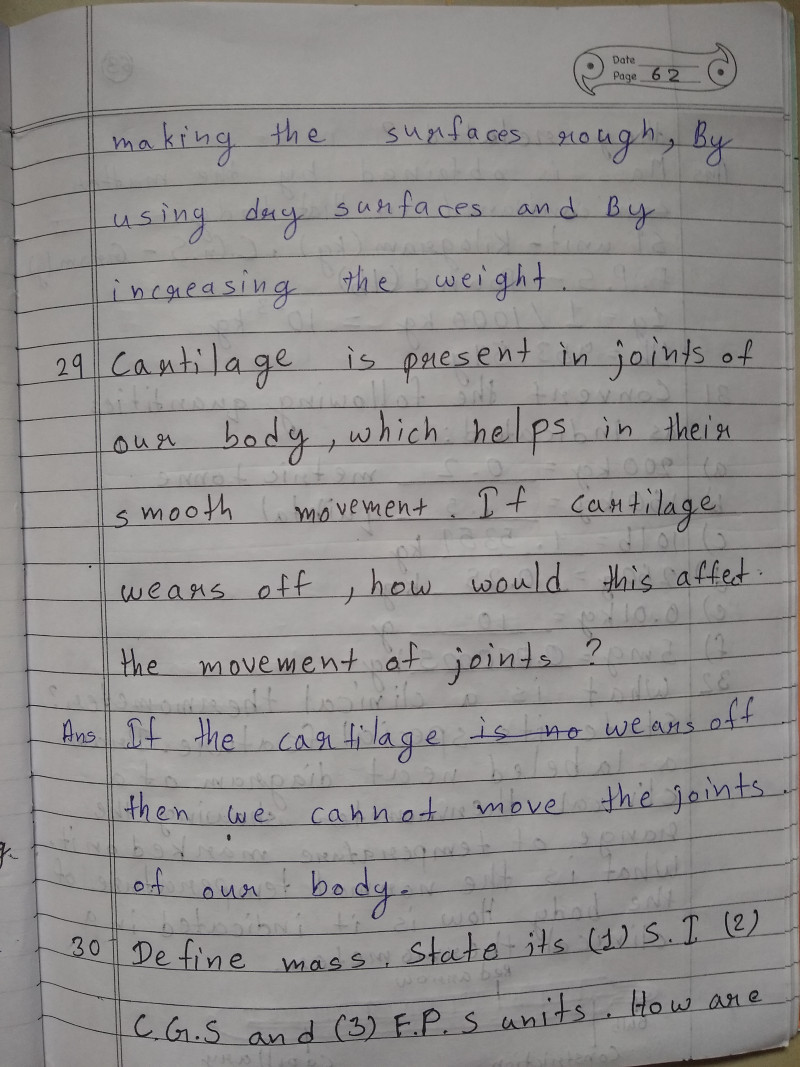 Date
Page 62
making the surfaces rough, By
using dry surfaces and By
increasing the weight.
29 Cartilage is present in joints of
our body, which helps in their
smooth movement. If cartilage
wears off, how would this affet.
the movement of joints ?
Ans If the cartilage is no wears off
then we cannot move the joints.
of our body.
30 Define mass. State its (1) S.I (2)
C.G.S and (3) F.P.S units. How are